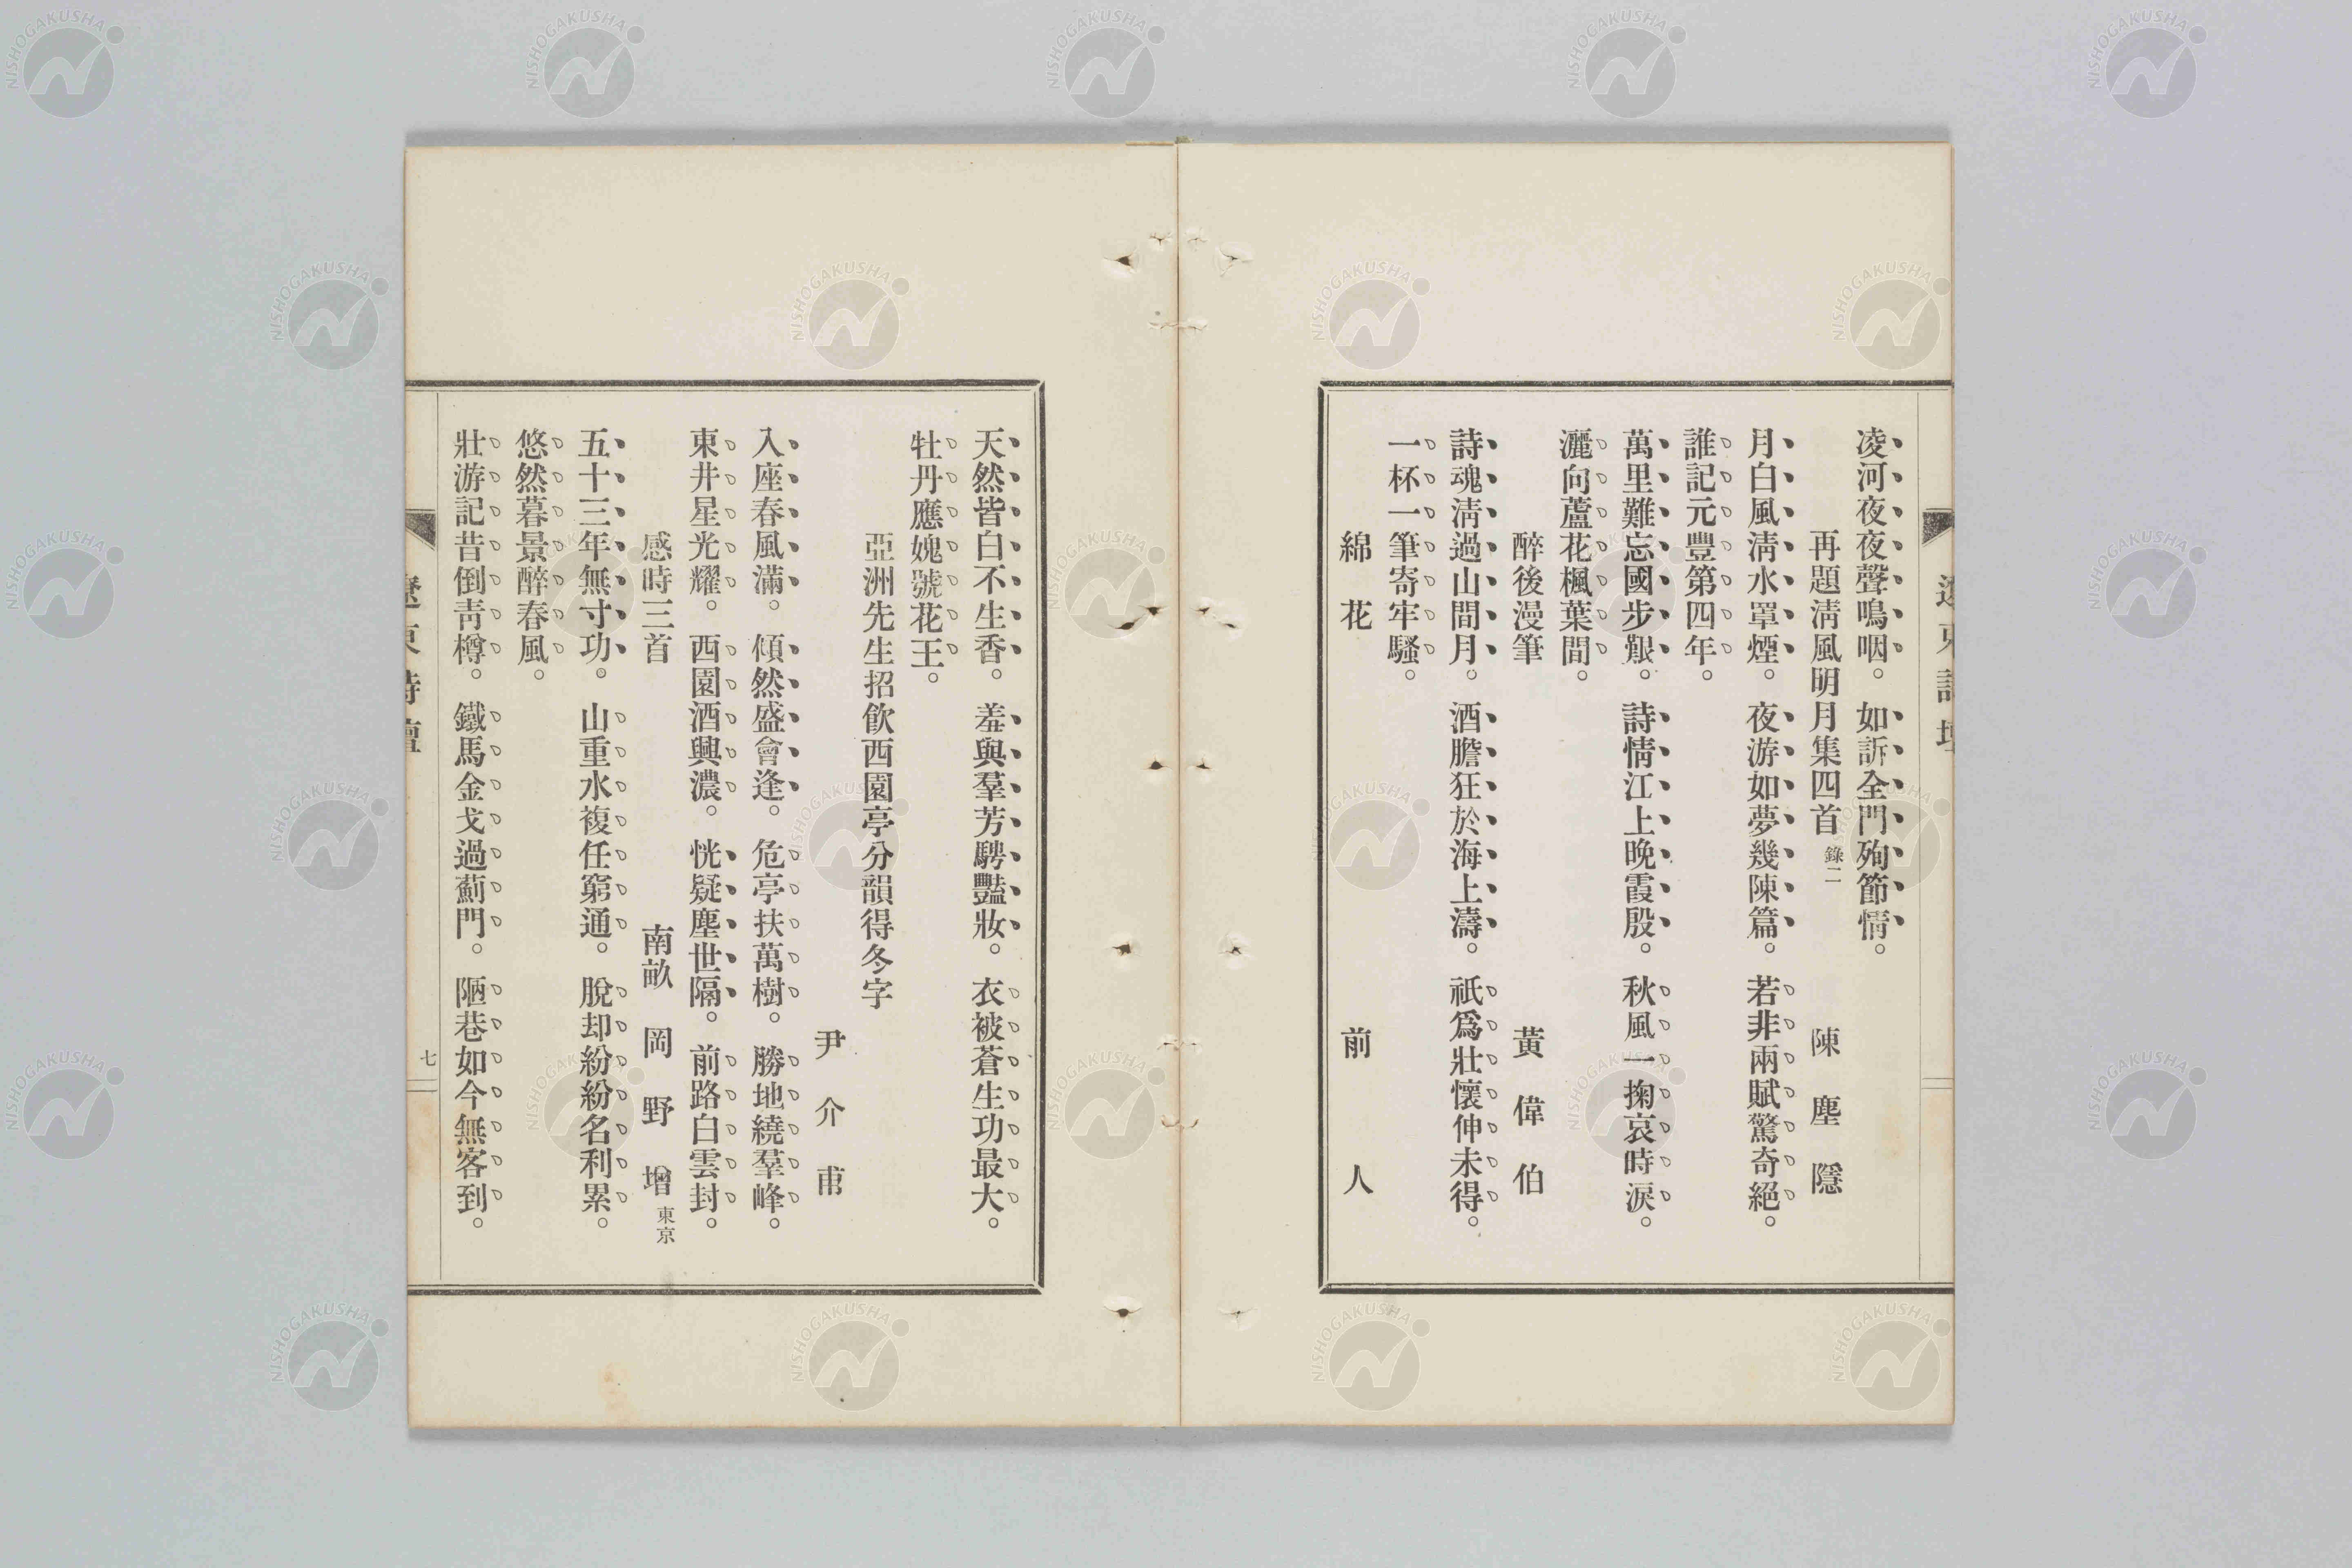 凌河夜夜聲鳴咽。如訴全門殉節情。
再題淸風明月集四首 錄二 陳塵隱
月白風淸水罩煙。夜游如夢幾陳篇。若非兩賦驚奇絕。
誰記元豐第四年。
萬里難忘國步艱。詩情江上晚霞殷。秋風一掬哀時淚。
灑向蘆花楓葉間。
醉後漫筆 黃偉伯
詩魂淸過山間月。酒膽狂於海上濤。祇爲壯懷伸未得。
一杯一筆寄牢騷。
綿花 前人
天然皆白不生香。羞與羣芳騁豔妝。衣被蒼生功最大。
牡丹應媿號花王。
亞洲先生招飮西園亭分韻得冬字
尹介甫
入座春風滿。傾然盛會逢。危亭扶萬樹。勝地繞羣峰。
東井星光耀。西園酒興濃。恍疑塵世隔。前路白雲封。
感時三首 南畝 岡野增 東京
五十三年無寸功。山重水複任窮通。脫却紛紛名利累。
悠然暮景醉春風。
壯游記昔倒靑樽。鐵馬金戈過薊門。陋巷如今無客到。
遼東詩壇
七
NISHOGAKUSHA